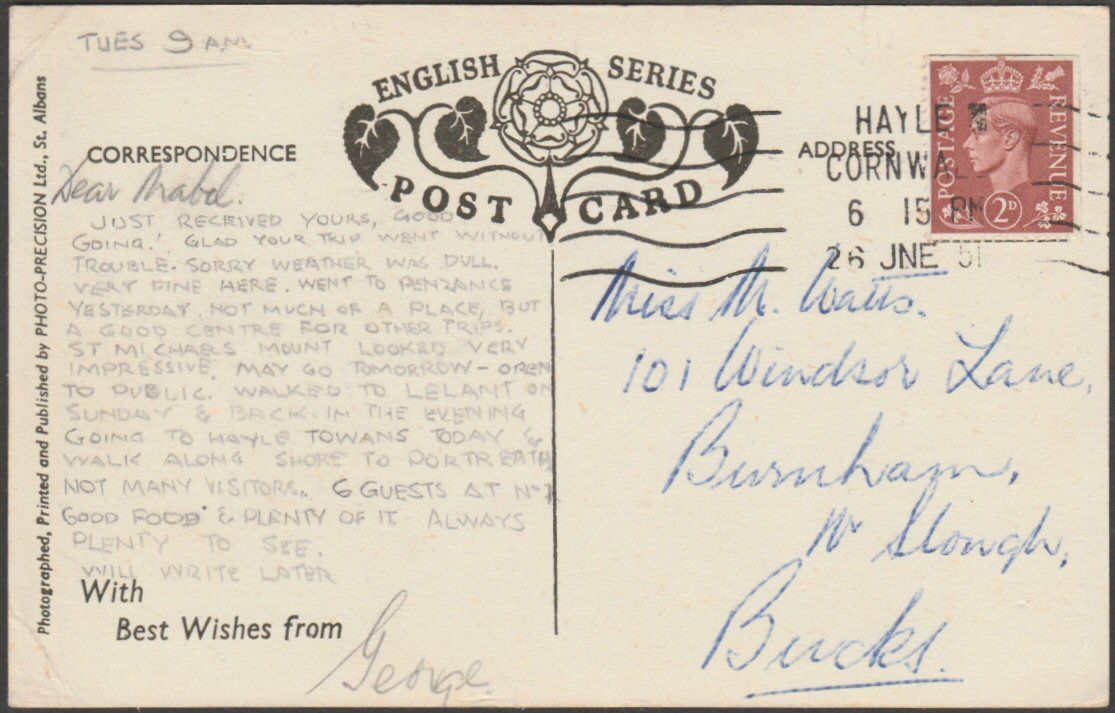 TUES 9 AM
ENGLISH SERIES
POST CARD
CORRESPONDENCE
Dear Mabel.
JUST RECEIVED YOURS, GOOD
GOING! GLAD YOUR TRIP WENT WITHOUT
TROUBLE. SORRY WEATHER WAS DULL.
VERY FINE HERE. WENT TO PENZANCE
YESTERDAY. NOT MUCH OF A PLACE, BUT
A GOOD CENTRE FOR OTHER TRIPS.
ST MICHAELS MOUNT LOOKED VERY
IMPRESSIVE. MAY GO TOMORROW - OPEN
TO PUBLIC. WALKED TO LELANT ON
SUNDAY & BACK IN THE EVENING
GOING TO HAYLE TOWANS TODAY &
WALK ALONG SHORE TO PORTREATH
NOT MANY VISITORS. 6 GUESTS AT No 7
GOOD FOOD & PLENTY OF IT. ALWAYS
PLENTY TO SEE.
WILL WRITE LATER
With
Best Wishes from
George.
Photographed, Printed and Published by PHOTO-PRECISION Ltd., St. Albans
ADDRESS
HAYLE
CORNWAL
6 15 PM
26 JNE 51
POSTAGE
REVENUE
2D
Miss M. Watts.
101 Windsor Lane,
Burnham,
Nr Slough,
Bucks.